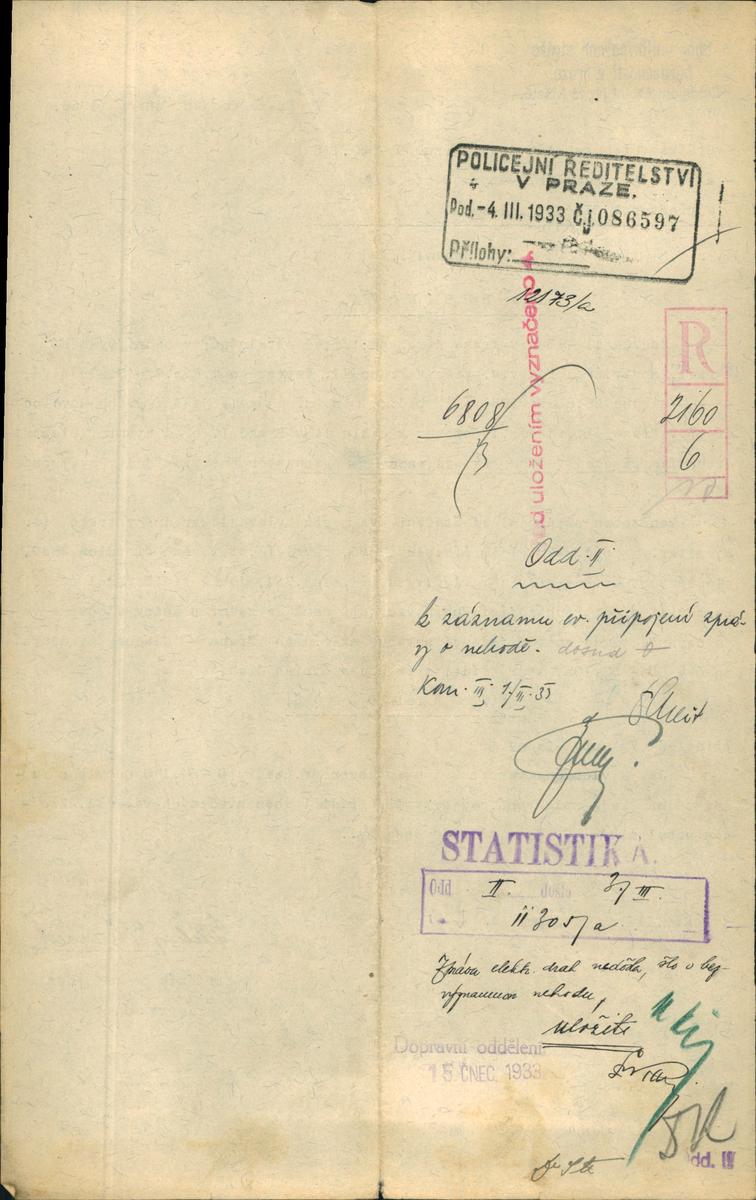 POLICEJNÍ ŘEDITELSTVÍ
V PRAZE.
Pod. -4. III. 1933 Č.j. 086597
Přílohy:
12173/a
d uložením vyznačeno
R
6808
2160
6
Odd. II.
k záznamu ev. připojení zprá-
vy o nehodě. dosud
Kom. III.
STATISTIKA.
Odd II. došlo 3/III.
Zpráva elektr. drah nedošla, šlo o bez-
významnou nehodu,
uložiti
Dopravní oddělení
15 ČNEC. 1933